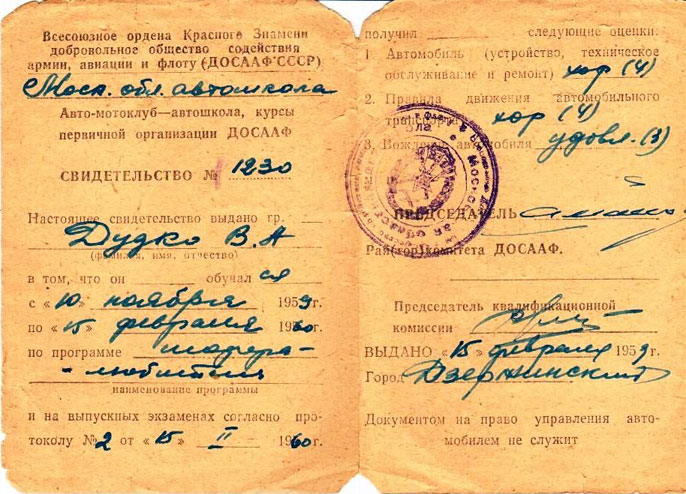 Всесоюзное ордена Красного Знамени
добровольное общество содействия
армии, авиации и флоту (ДОСААФ СССР)
Моск. обл. автошкола
Авто-мотоклуб—автошкола, курсы
первичной организации ДОСААФ
СВИДЕТЕЛЬСТВО № 1230
Настоящее свидетельство выдано гр.
Дудко В. А
(фамилия, имя, отчество)
в том, что он обучался
с «10» ноября 1959г.
по «15» февраля 1960г.
по программе шофера-
-любителя
наименование программы
и на выпускных экзаменах согласно про-
токолу № 2 от «15» II 1960г.
получил следующие оценки:
1 Автомобиль (устройство, техническое
обслуживание и ремонт) хор (4)
2. Правила движения автомобильного
транспорта хор (4)
3. Вождение автомобиля удовл. (3)
ПРЕДСЕДАТЕЛЬ
Рай(гор)комитета ДОСААФ.
Председатель квалификационной
комиссии
ВЫДАНО «15» февраля 1959г
Город Дзержинский
Документом на право управления авто-
мобилем не служит